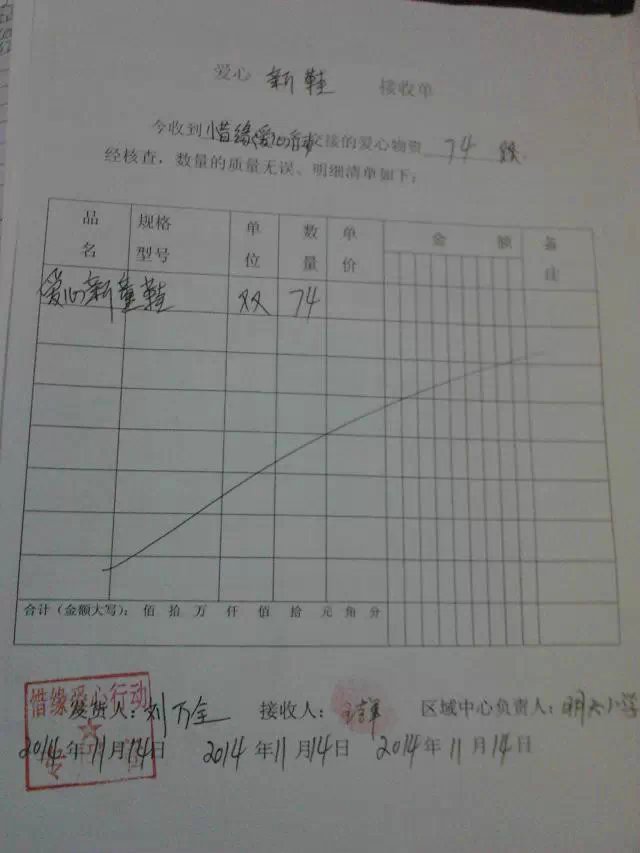 爱心 新鞋 接收单
今收到 惜缘爱心 交接的爱心物资 74 双
经核查，数量的质量无误、明细清单如下：
品名 规格型号 单位 数量 单价 金额 备注
爱心新童鞋 双 74
合计（金额大写）： 佰 拾 万 仟 佰 拾 元 角 分
惜缘爱心行动
发货人：刘万全 接收人： 区域中心负责人： 小学
2014年11月14日 2014年11月14日 2014年11月14日